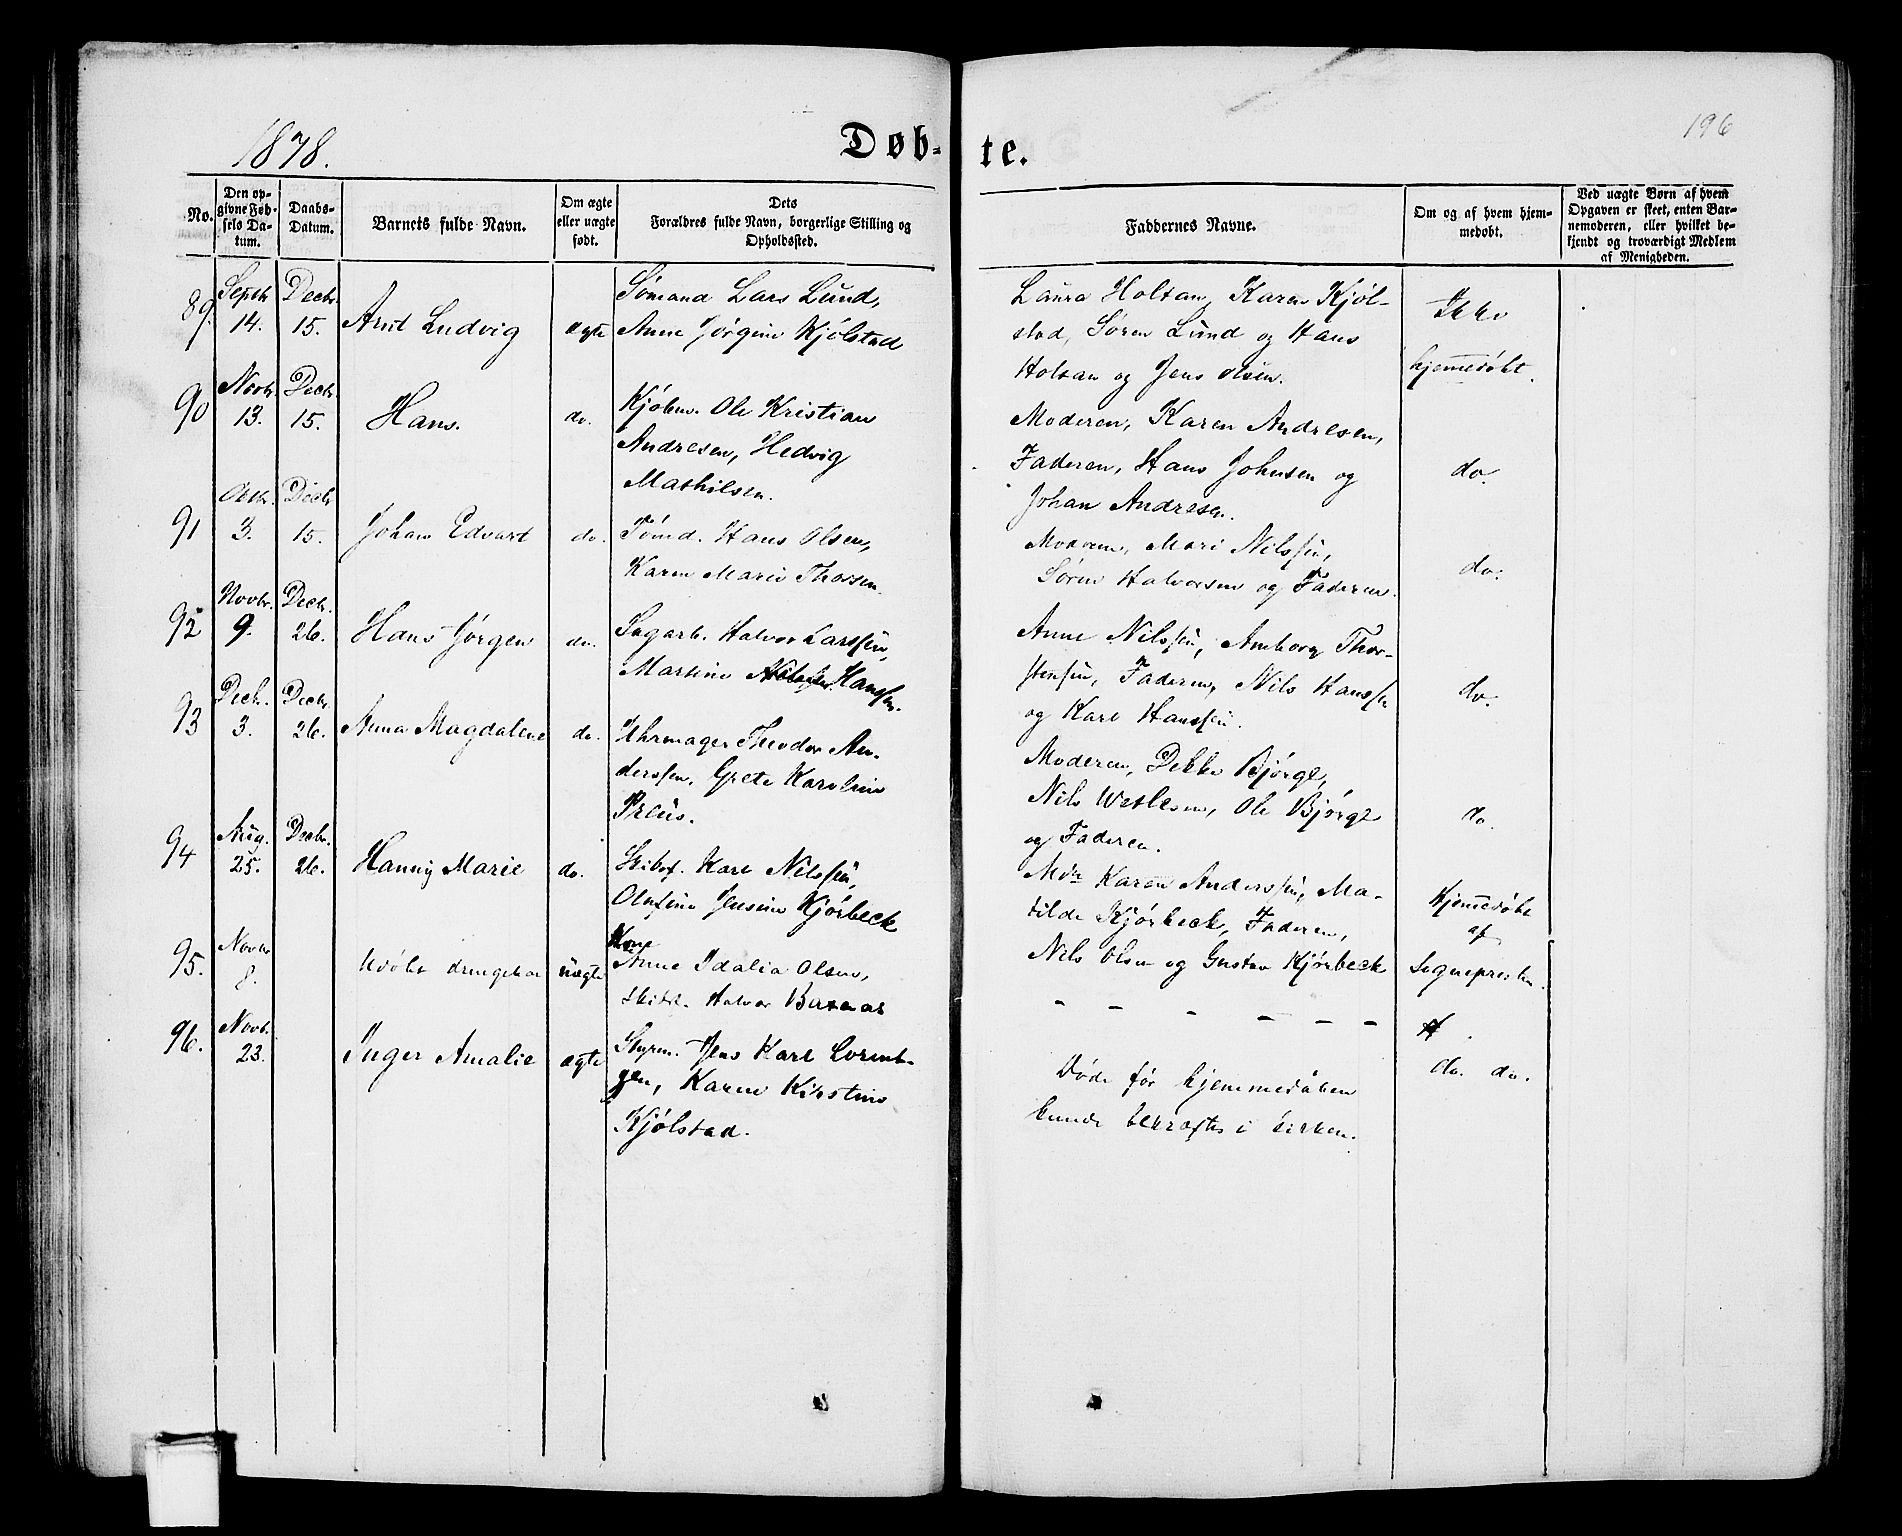 1878.
Døb-
te.
196
No.
Den op-
givne Fød-
sels Da-
tum.
Daabs-
Datum.
Barnets fulde Navn.
Om ægte
eller uægte
født.
Dets
Forældres fulde Navn, borgerlige Stilling og
Opholdssted.
Faddernes Navne.
Om og af hvem hjem-
medøbt.
Ved uægte Børn af hvem
Opgaven er skeet, enten Bar-
nemoderen, eller hvilket be-
kjendt og troværdigt Medlem
af Menigheden.
89.
Septbr
14.
Decbr.
15.
Arnt Ludvig
ægte
Sømand Lars Lund,
Anne Jørgine Kjølstad
Laura Holtan, Karen Kjøl-
stad, Søren Lund og Hans
Holtan og Jens Olsen.
Ikke
hjemmedøbt.
90
Novbr.
13.
Decbr.
15.
Hans.
do.
Kjøbm. Ole Kristian
Andresen, Hedvig
Mathilsen.
Moderen, Karen Andresen,
Faderen, Hans Johnsen og
Johan Andresen.
do.
91
Octbr.
3.
Decbr
15.
Johan Edvart
do.
Tømd. Hans Olsen,
Karen Marie Thossen.
Moderen, Mari Nilssen,
Søren Halvorsen og Faderen.
do.
92
Novbr.
9.
Decbr.
26.
Hans Jørgen
do.
Sagarb. Halvor Larssen,
Martine Hanssen.
Anne Nilssen, Amborg Thor-
stensen, Faderen, Nils Hanssen
og Karl Hanssen.
do.
93
Decbr.
3.
Decbr.
26.
Anna Magdalene
do.
Uhrmager Theodor An-
derssen, Grete Karoline
Preus.
Moderen, Dekke Bjørge,
Nils Wetlesen, Ole Bjørge
og Faderen.
do.
94
Aug.
25.
Decbr.
26.
Hanny Marie
do.
Skibsf. Karl Nilssen,
Olufine Jensine Kjørbeck
Mdr Karen Anderssen, Ma-
tilde Kjørbeck, Faderen,
Nils Olsen og Gustav Kjørbeck
Hjemmedøbt
af
Sognepresten.
95.
Novbr
8.
Udøbt drengebar
uægte
Anne Idalia Olsen,
Halvor
- - - - - -
96.
Novb.
23.
Inger Amalie
ægte
Styrm. Jens Karl Lorent-
zen, Karen Kirstine
Kjølstad.
Døde før hjemmedåben
kunde bekræftes i kirken.
do. do.